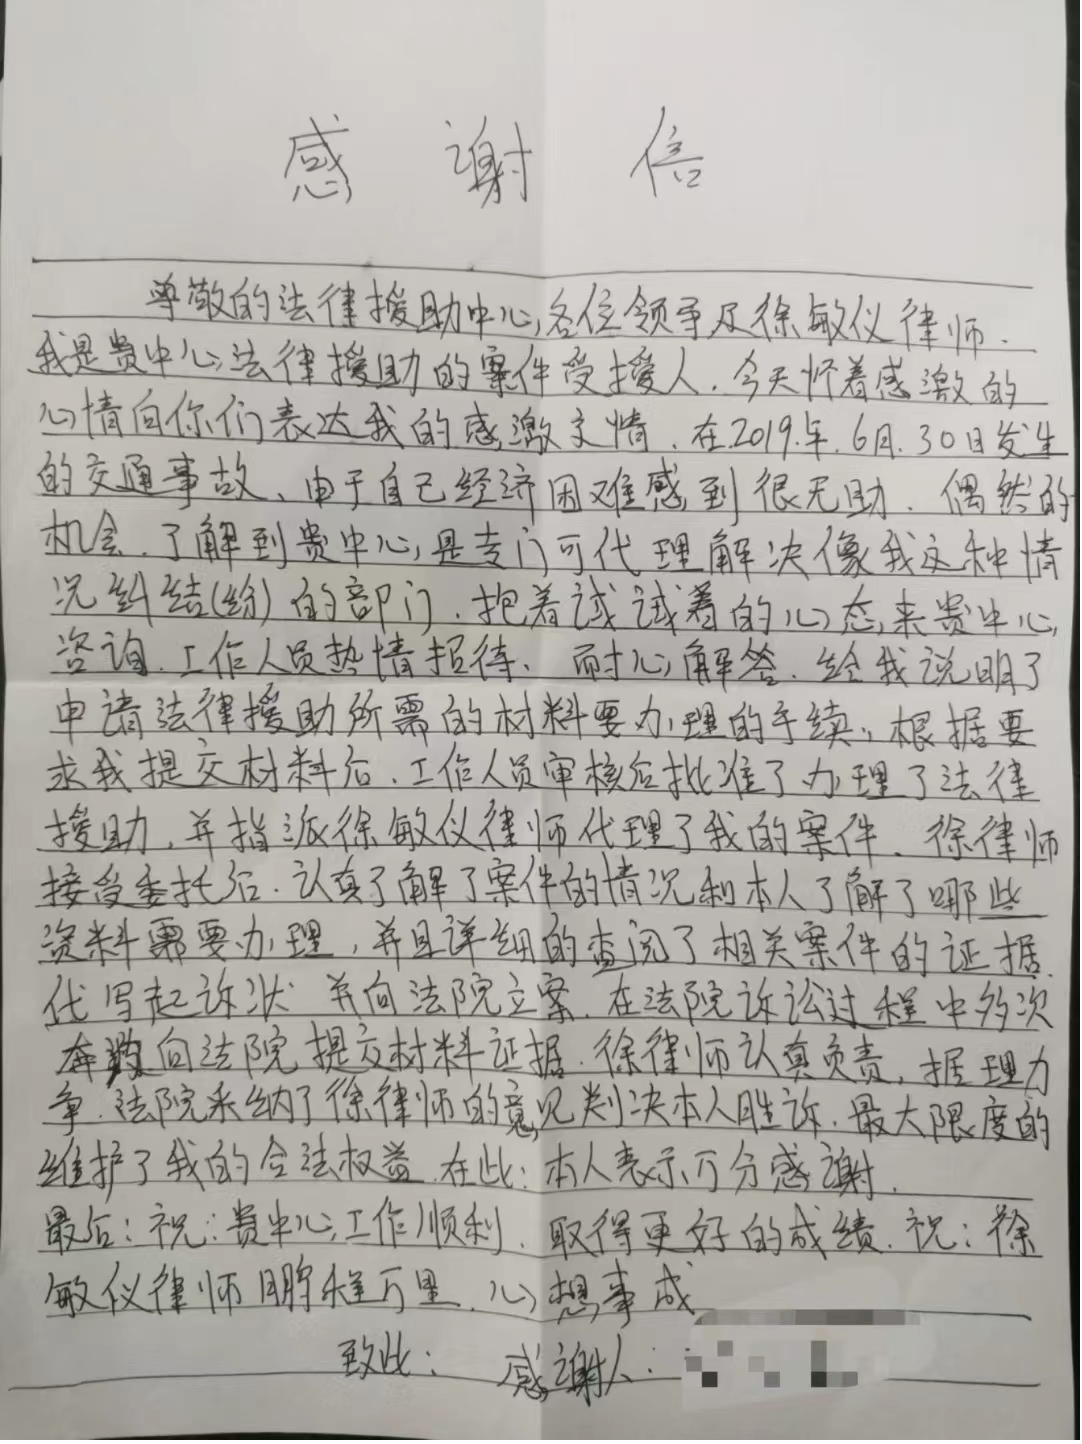 感谢信
尊敬的法律援助中心,各位领导及徐敏仪律师.
我是贵中心法律援助的案件受援人.今天怀着感激的
心情向你们表达我的感激之情.在2019.年.6月.30日发生
的交通事故、由于自己经济困难感到很无助.偶然的
机会.了解到贵中心,是专门可代理解决像我这种情
况纠结(纷)的部门.抱着试试着的心态,来贵中心,
咨询.工作人员热情招待、耐心,解答.给我说明了
申请法律援助所需的材料要办理的手续,根据要
求我提交材料后.工作人员审核后批准了办理了法律
援助,并指派徐敏仪律师代理了我的案件.徐律师
接受委托后.认真了解了案件的情况和本人了解了哪些
资料需要办理,并且详细的查阅了相关案件的证据.
代写起诉状 并向法院立案.在法院诉讼过程中多次
奔跑向法院提交材料证据.徐律师认真负责,据理力
争.法院采纳了徐律师的意见判决本人胜诉.最大限度的
维护了我的合法权益.在此:本人表示万分感谢.
最后:祝:贵中心,工作顺利.取得更好的成绩.祝:徐
敏仪律师鹏程万里.心想事成
致此: 感谢人: